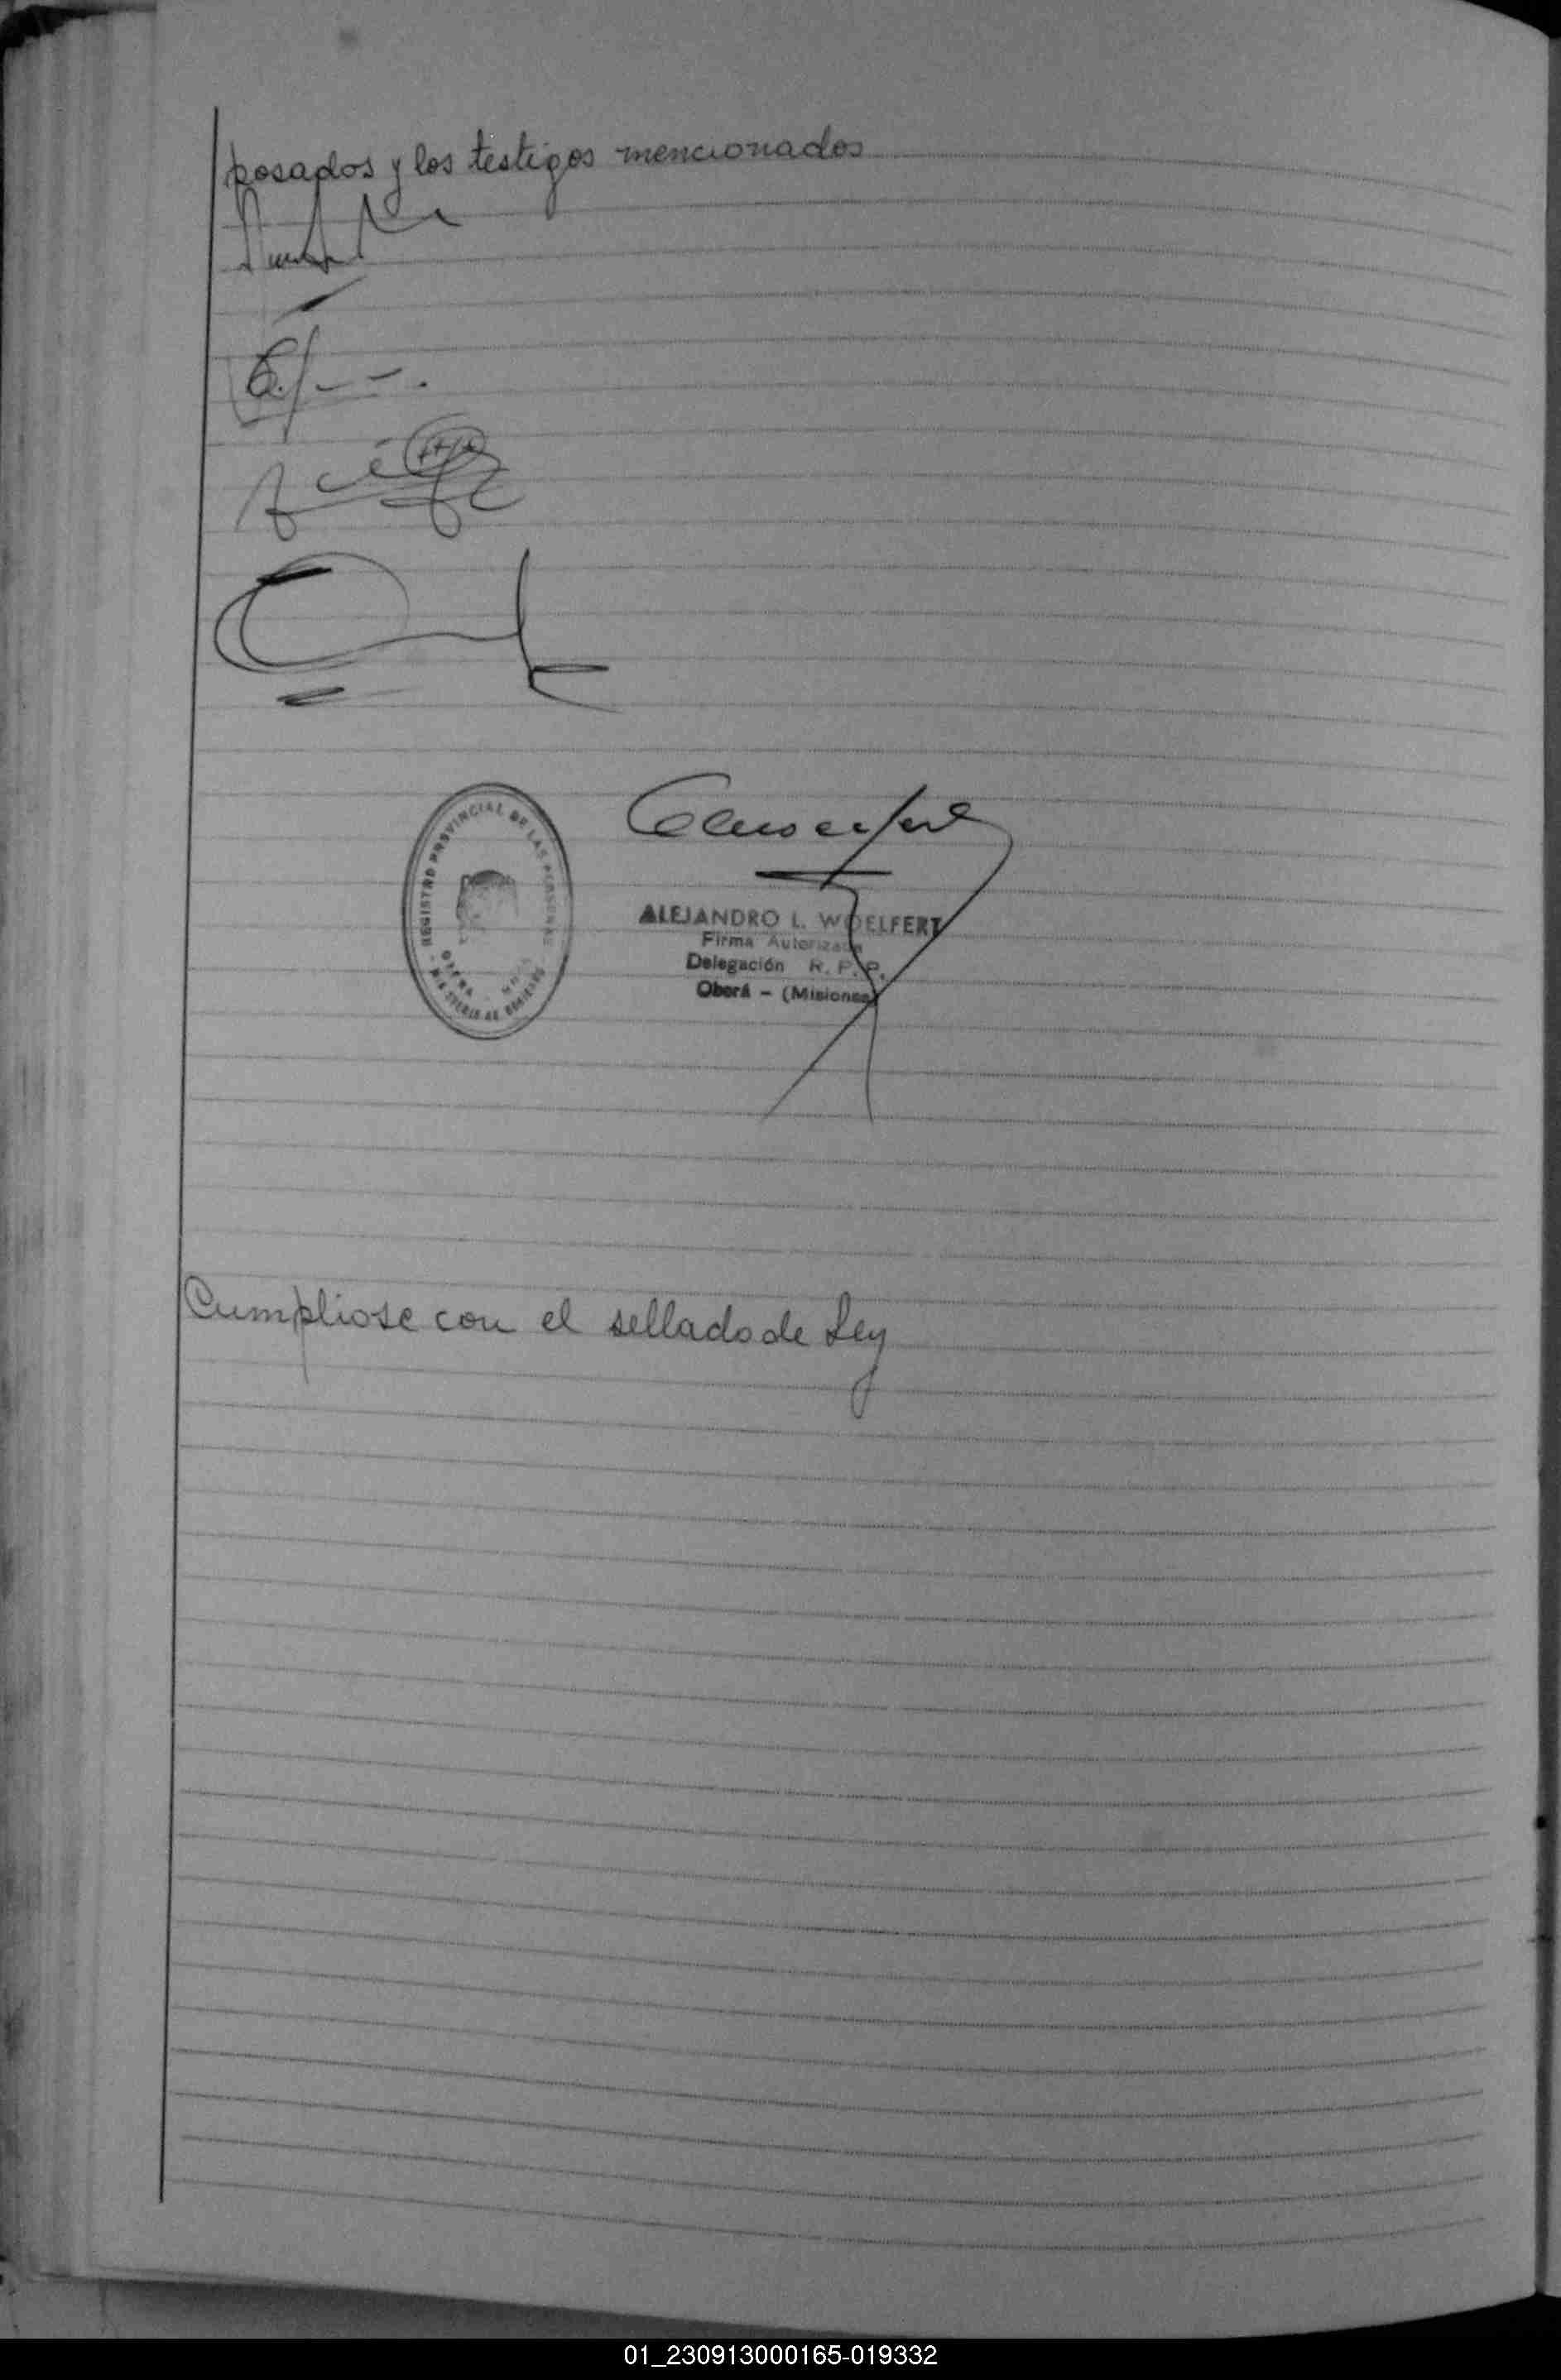 posados y los testigos mencionados
REGISTRO PROVINCIAL DE LAS PERSONAS
ALEJANDRO L. WOELFERT
Firma Autorizada
Delegación R. P. P.
Oberá - (Misiones)
Cumpliose con el sellado de Ley
01_230913000165-019332